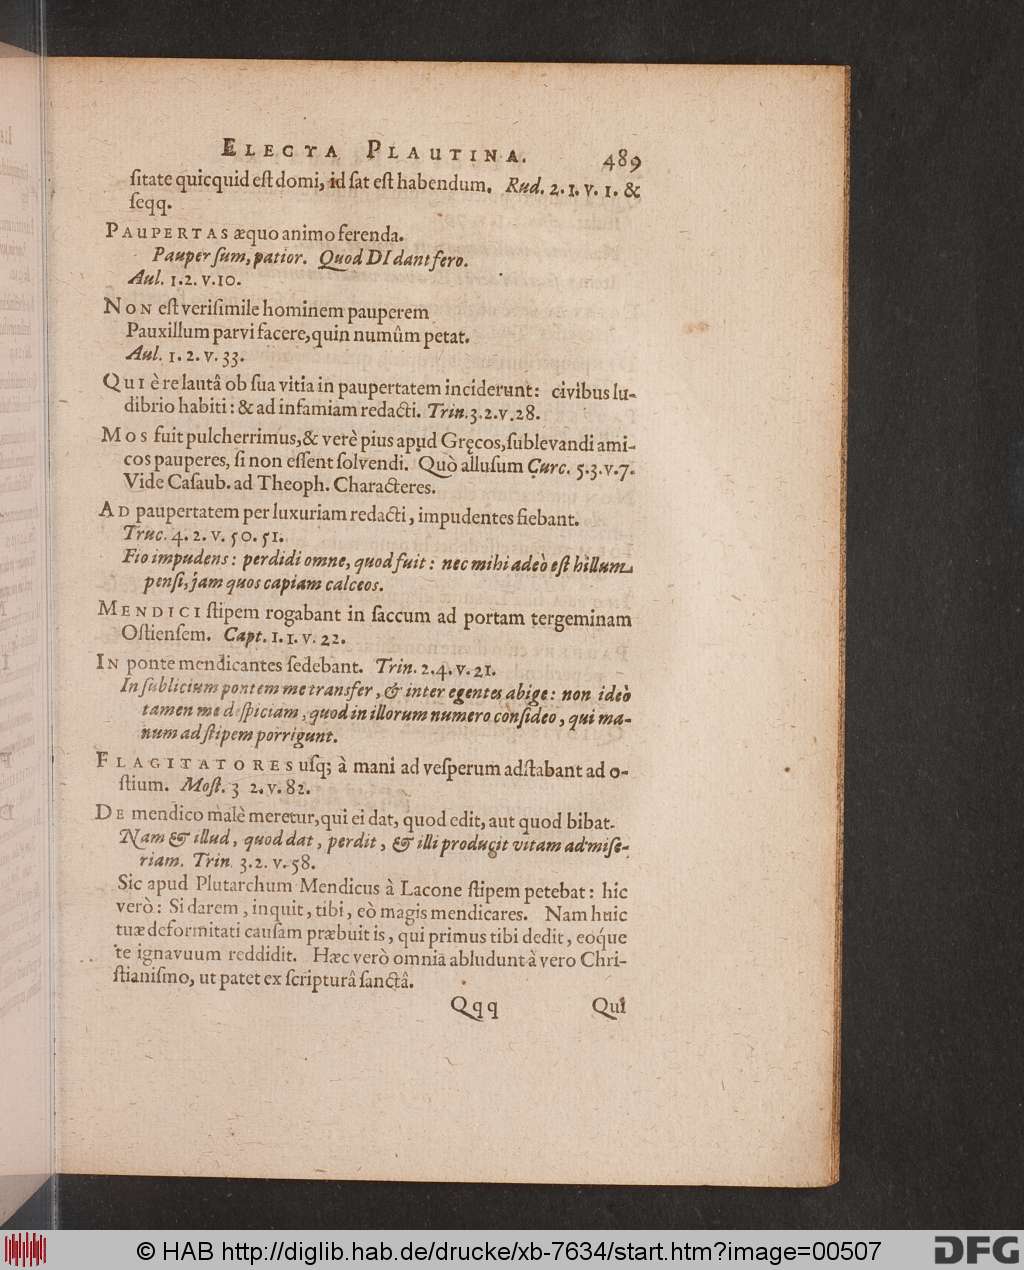 ELECTA PLAUTINA. 489
ſitate quicquid eſt domi, id ſat eſt habendum. Rud. 2. 1. v. 1. &
ſeqq.
PAUPERTAS æquo animo ferenda.
Pauper ſum, patior. Quod DI dant fero.
Aul. 1. 2. v. 10.
NON eſt veriſimile hominem pauperem
Pauxillum parvi facere, quin numûm petat.
Aul. 1. 2. v. 33.
QUI è re lautâ ob ſua vitia in paupertatem inciderunt: civibus lu-
dibrio habiti: & ad infamiam redacti. Trin. 3. 2. v. 28.
MOS fuit pulcherrimus, & verè pius apud Gręcos, ſublevandi ami-
cos pauperes, ſi non eſſent ſolvendi. Quò alluſum Curc. 5. 3. v. 7.
Vide Caſaub. ad Theoph. Characteres.
AD paupertatem per luxuriam redacti, impudentes fiebant.
Truc. 4. 2. v. 50. 51.
Fio impudens: perdidi omne, quod fuit: nec mihi adeò eſt hillum
penſi, jam quos capiam calceos.
MENDICI ſtipem rogabant in ſaccum ad portam tergeminam
Oſtienſem. Capt. 1. 1. v. 22.
IN ponte mendicantes ſedebant. Trin. 2. 4. v. 21.
In ſublicium pontem me transfer, & inter egentes abige: non ideò
tamen me deſpiciam, quod in illorum numero conſideo, qui ma-
num ad ſtipem porrigunt.
FLAGITATORES uſq; à mani ad veſperum adſtabant ad o-
ſtium. Moſt. 3 2. v. 82.
DE mendico malè meretur, qui ei dat, quod edit, aut quod bibat.
Nam & illud, quod dat, perdit, & illi producit vitam ad miſe-
riam. Trin. 3. 2. v. 58.
Sic apud Plutarchum Mendicus à Lacone ſtipem petebat: hic
verò: Si darem, inquit, tibi, eò magis mendicares. Nam huic
tuæ deformitati cauſam præbuit is, qui primus tibi dedit, eoq́ue
te ignavuum reddidit. Hæc verò omnia abludunt à vero Chri-
ſtianiſmo, ut patet ex ſcripturâ ſanctâ.
Qqq Qui
© HAB http://diglib.hab.de/drucke/xb-7634/start.htm?image=00507 DFG